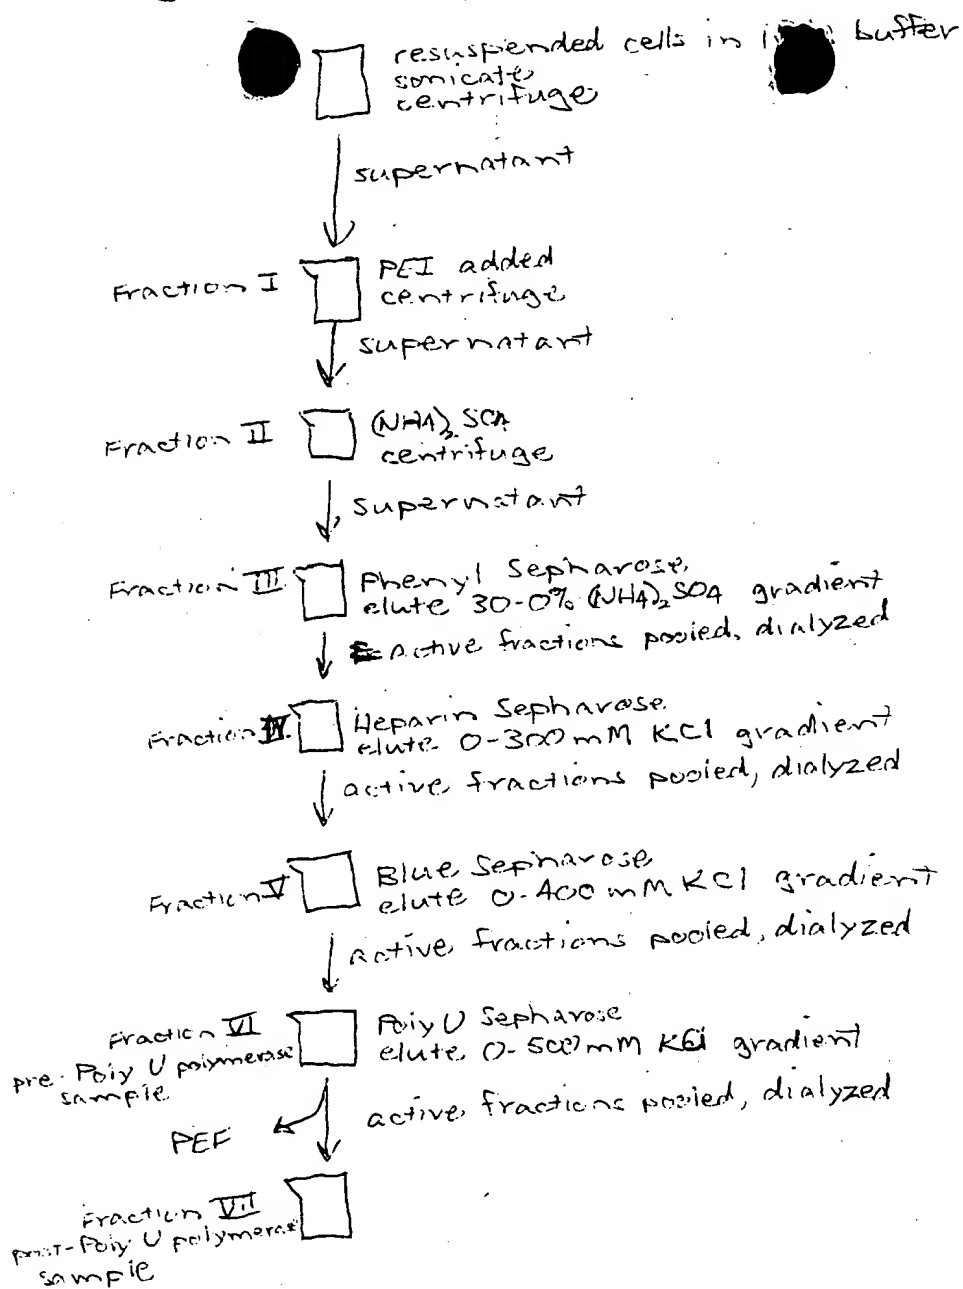 resuspended cells in buffer
sonicate
centrifuge
supernatant
Fraction I
PEI added
centrifuge
supernatant
Fraction II
(NH4)2 SO4
centrifuge
supernatant
Fraction III
Phenyl Sepharose
elute 30-0% (NH4)2 SO4 gradient
active fractions pooled, dialyzed
Fraction IV
Heparin Sepharose
elute 0-300mM KCl gradient
active fractions pooled, dialyzed
Fraction V
Blue Sepharose
elute 0-400mM KCl gradient
active fractions pooled, dialyzed
Fraction VI
pre-Poly U polymerase
sample
Poly U Sepharose
elute 0-500mM KCl gradient
active fractions pooled, dialyzed
PEF
Fraction VII
post-Poly U polymerase
sample